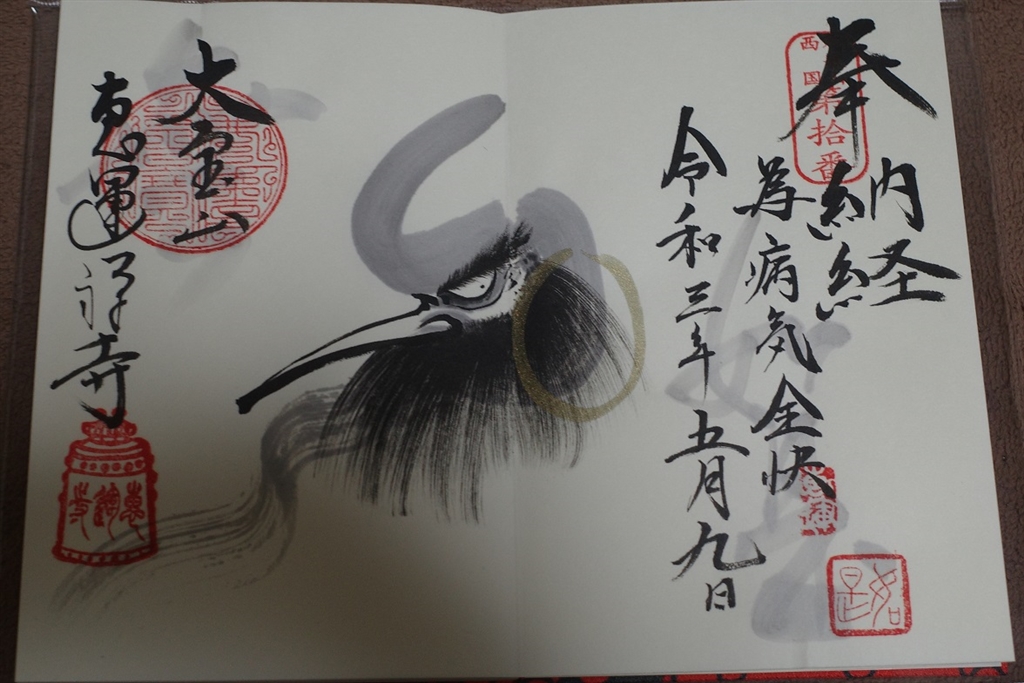 西国
第拾番
奉納経
為病気全快
令和三年五月九日
如是
大宝山
恵運禅寺